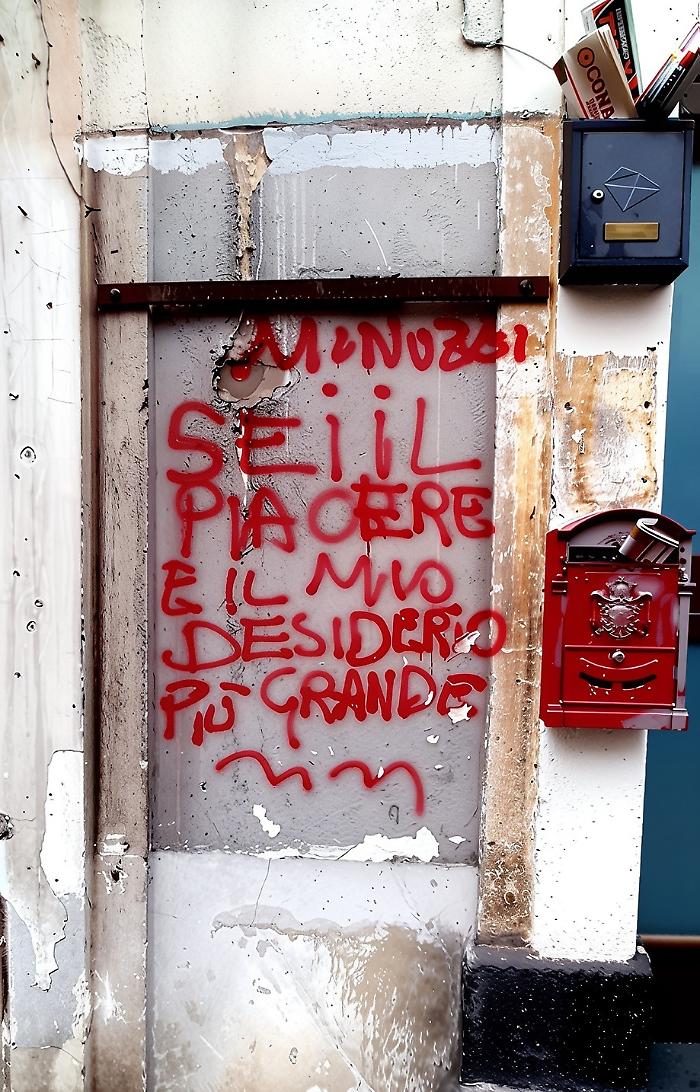 CONA
SEi iL
PIACERE
E IL MIO
DESIDERIO
PIÙ GRANDE